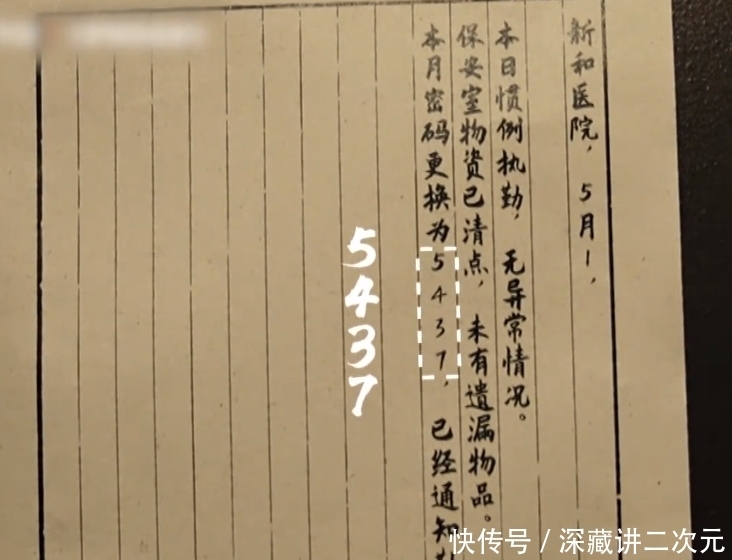 新和医院，5月1，
本日惯例执勤，无异常情况。
保安室物资已清点，未有遗漏物品。
本月密码更换为5437，已经通知
5437
快传号／深藏讲二次元